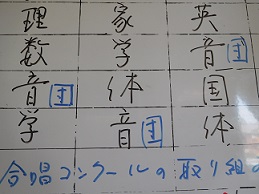 理 家 英
数 学 音国
音国 体 国
学 音国 体
合唱コンクールの取り組